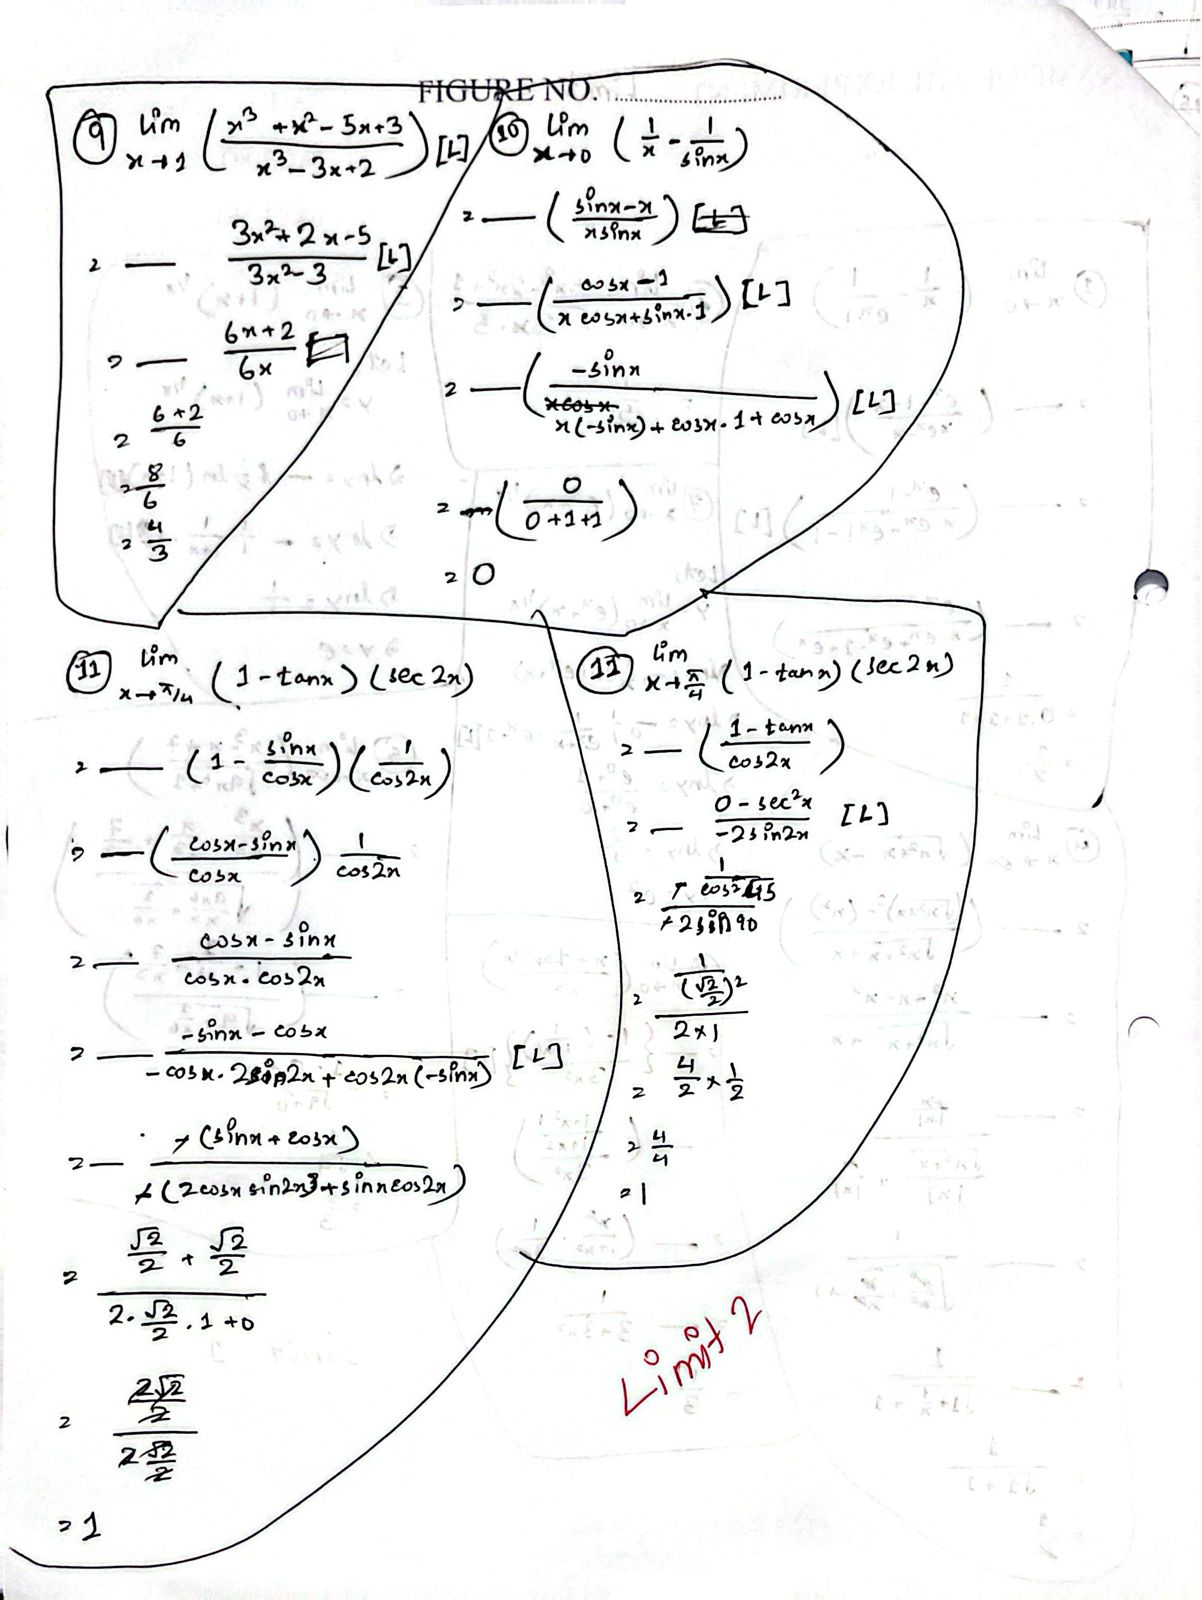 FIGURE NO. ..............................
(9) lim x→1 ( (x³ + x² - 5x + 3) / (x³ - 3x + 2) ) [L]
= — (3x² + 2x - 5) / (3x² - 3) [L]
= — (6x + 2) / 6x
= (6 + 2) / 6
= 8/6
= 4/3
(10) lim x→0 ( 1/x - 1/sinx )
= — ( (sinx - x) / (x sinx) )
= — ( (cosx - 1) / (x cosx + sinx . 1) ) [L]
= — ( -sinx / (x(-sinx) + cosx . 1 + cosx) ) [L]
= — ( 0 / (0 + 1 + 1) )
= 0
(11) lim x→π/4 (1 - tanx) (sec 2x)
= — (1 - sinx/cosx) (1/cos2x)
= — ( (cosx - sinx) / cosx ) 1/cos2x
= — (cosx - sinx) / (cosx . cos2x)
= — (-sinx - cosx) / (-cosx . 2sin2x + cos2x (-sinx)) [L]
= — -(sinx + cosx) / -(2cosx sin2x + sinx cos2x)
= (√2/2 + √2/2) / (2 . √2/2 . 1 + 0)
= (2√2/2) / (2 √2/2)
= 1
(11) lim x→π/4 (1 - tanx) (sec 2x)
= — ( (1 - tanx) / cos2x )
= — (0 - sec²x) / (-2 sin2x) [L]
= (- 1/cos²45) / (-2 sin 90)
= (1/(√2/2)²) / (2 × 1)
= 4/2 × 1/2
= 4/4
= 1
Limit 2